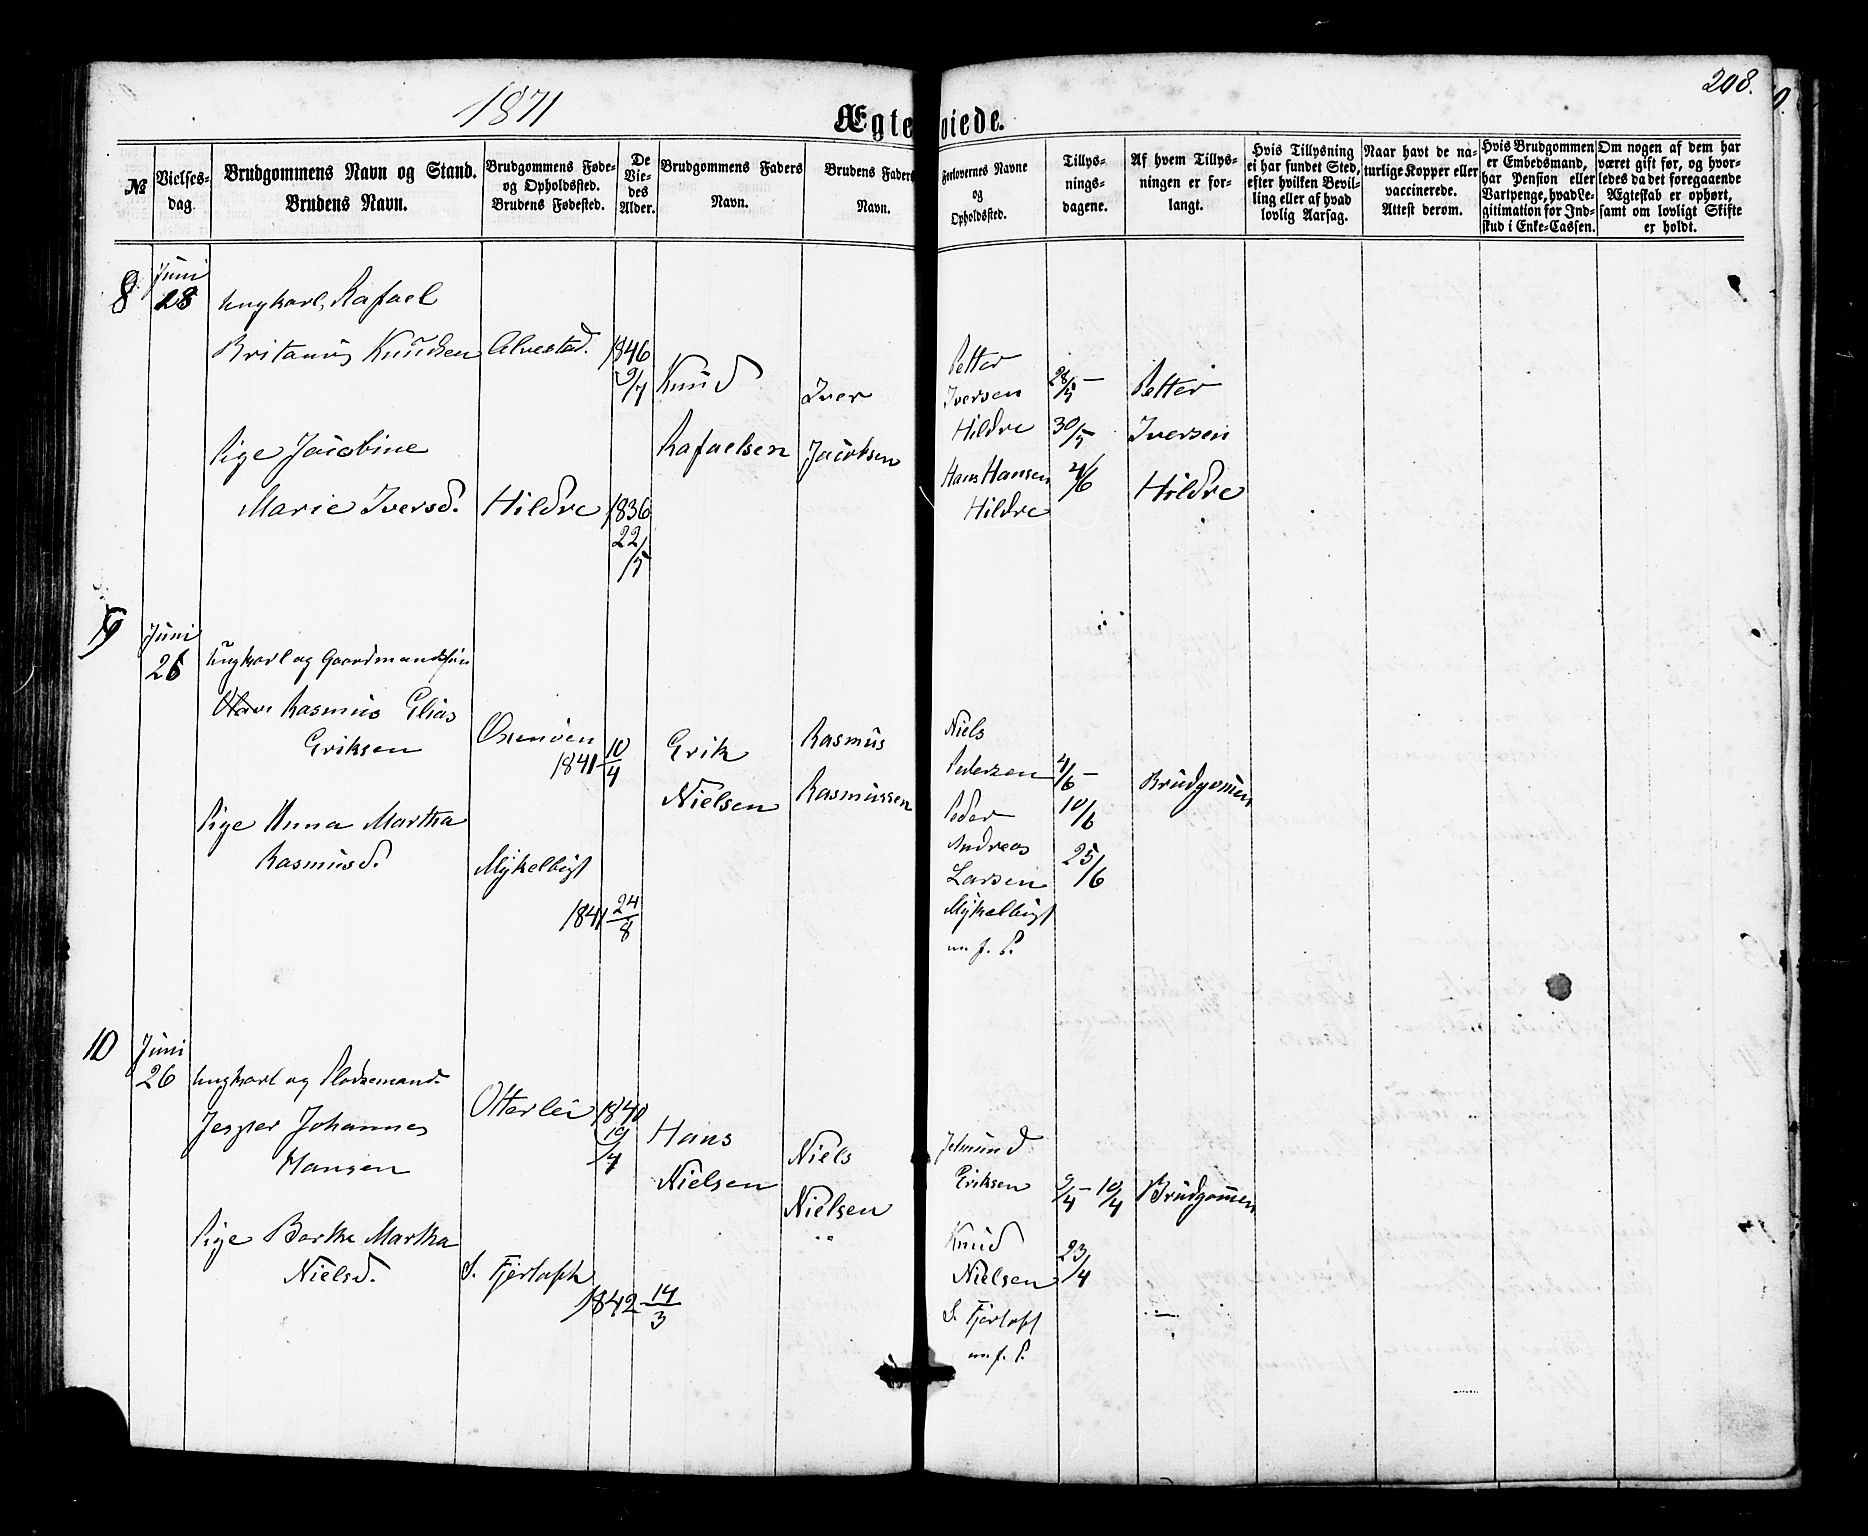 1871
Ægteviede.
208.
№
Vielses-
dag.
Brudgommens Navn og Stand.
Brudens Navn.
Brudgommens Føde-
og Opholdssted.
Brudens Fødested.
De
Vie-
des
Alder.
Brudgommens Faders
Navn.
Brudens Faders
Navn.
Forlovernes Navne
og
Opholdssted.
Tillys-
nings-
dagene.
Af hvem Tillys-
ningen er for-
langt.
Hvis Tillysning
ei har fundet Sted,
efter hvilken Bevil-
ling eller af hvad
lovlig Aarsag.
Naar havt de na-
turlige Kopper eller
vaccinerede.
Attest derom.
Hvis Brudgommen
er Embedsmand,
har Pension eller
Vartpenge, hvad Le-
gitimation for Ind-
skud i Enke-Cassen.
Om nogen af dem har
været gift før, og hvor-
ledes da det foregaaende
Ægteskab er ophørt,
samt om lovligt Skifte
er holdt.
8
Juni
28
Ungkarl, Rafael
Britanus Knudsen
Alvestad.
1846
9/7
Knud
Rafaelsen
Iver
Jacobsen
Pige Jacobine
Marie Iversd.
Hildre
1836
22/5
Petter
Iversen
Hildre
Hans Hansen
Hildre
28/5 –
30/5
4/6
Petter
Iversen
Hildre
9
Juni
26
Ungkarl og Gaardmandssøn
Rasmus Elias
Eriksen
1841 10/4
Erik
Nielsen
Rasmus
Rasmussen
Pige Anna Martha
Rasmusd.
Mykelbust
1841 24/8
Niels
Pedersen
Peder
Andreas
Larsen
Mykelbust
4/6 –
10/6
25/6
Brudgommen
10
Juni
26
Ungkarl og Pladsemand.
Jesper Johannes
Hansen
Otterlei
1840
19/4
Hans
Nielsen
Niels
Nielsen
Pige Berthe Martha
Nielsd.
S. Fjertoft
1842 14/3
Jetmund
Eriksen
Knud
Nielsen
S. Fjertoft
9/4 – 10/4
23/4
Brudgommen